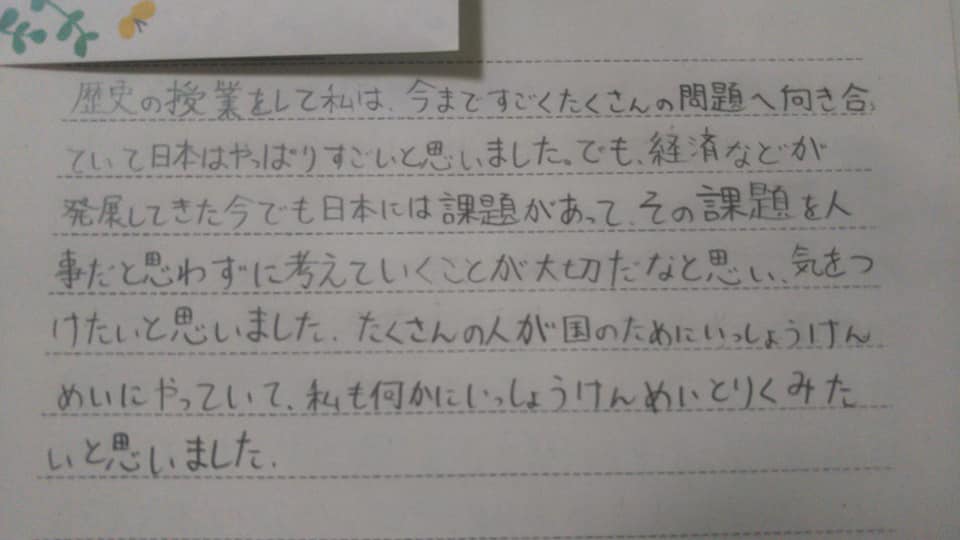 歴史の授業をして私は、今まですごくたくさんの問題へ向き合っ
ていて日本はやっぱりすごいと思いました。でも、経済などが
発展してきた今でも日本には課題があって、その課題を人
事だと思わずに考えていくことが大切だなと思い、気をつ
けたいと思いました。たくさんの人が国のためにいっしょうけん
めいにやっていて、私も何かにいっしょうけんめいとりくみた
いと思いました。